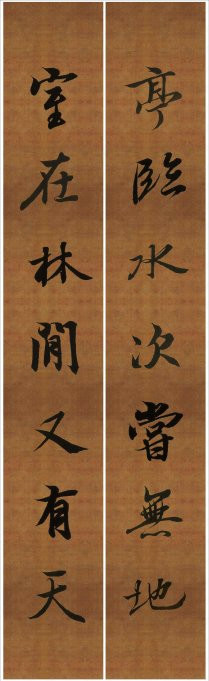 亭臨水次嘗無地
室在林間又有天